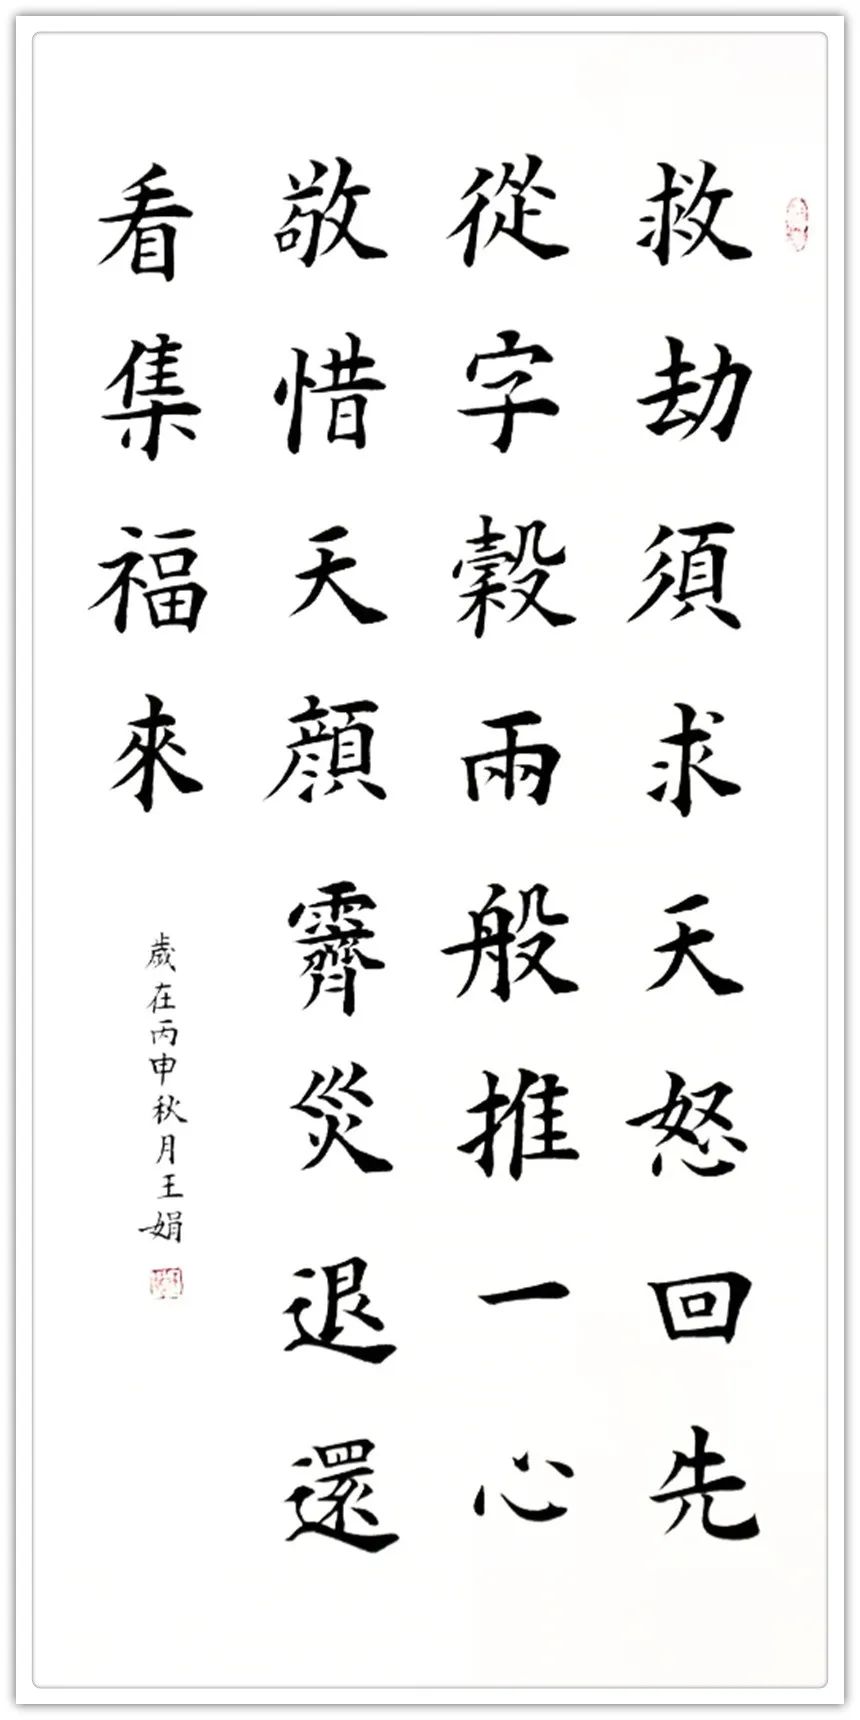 救劫須求天怒回先
從字穀兩般推一心
敬惜天顔霽災退還
看集福來
歲在丙申秋月王娟